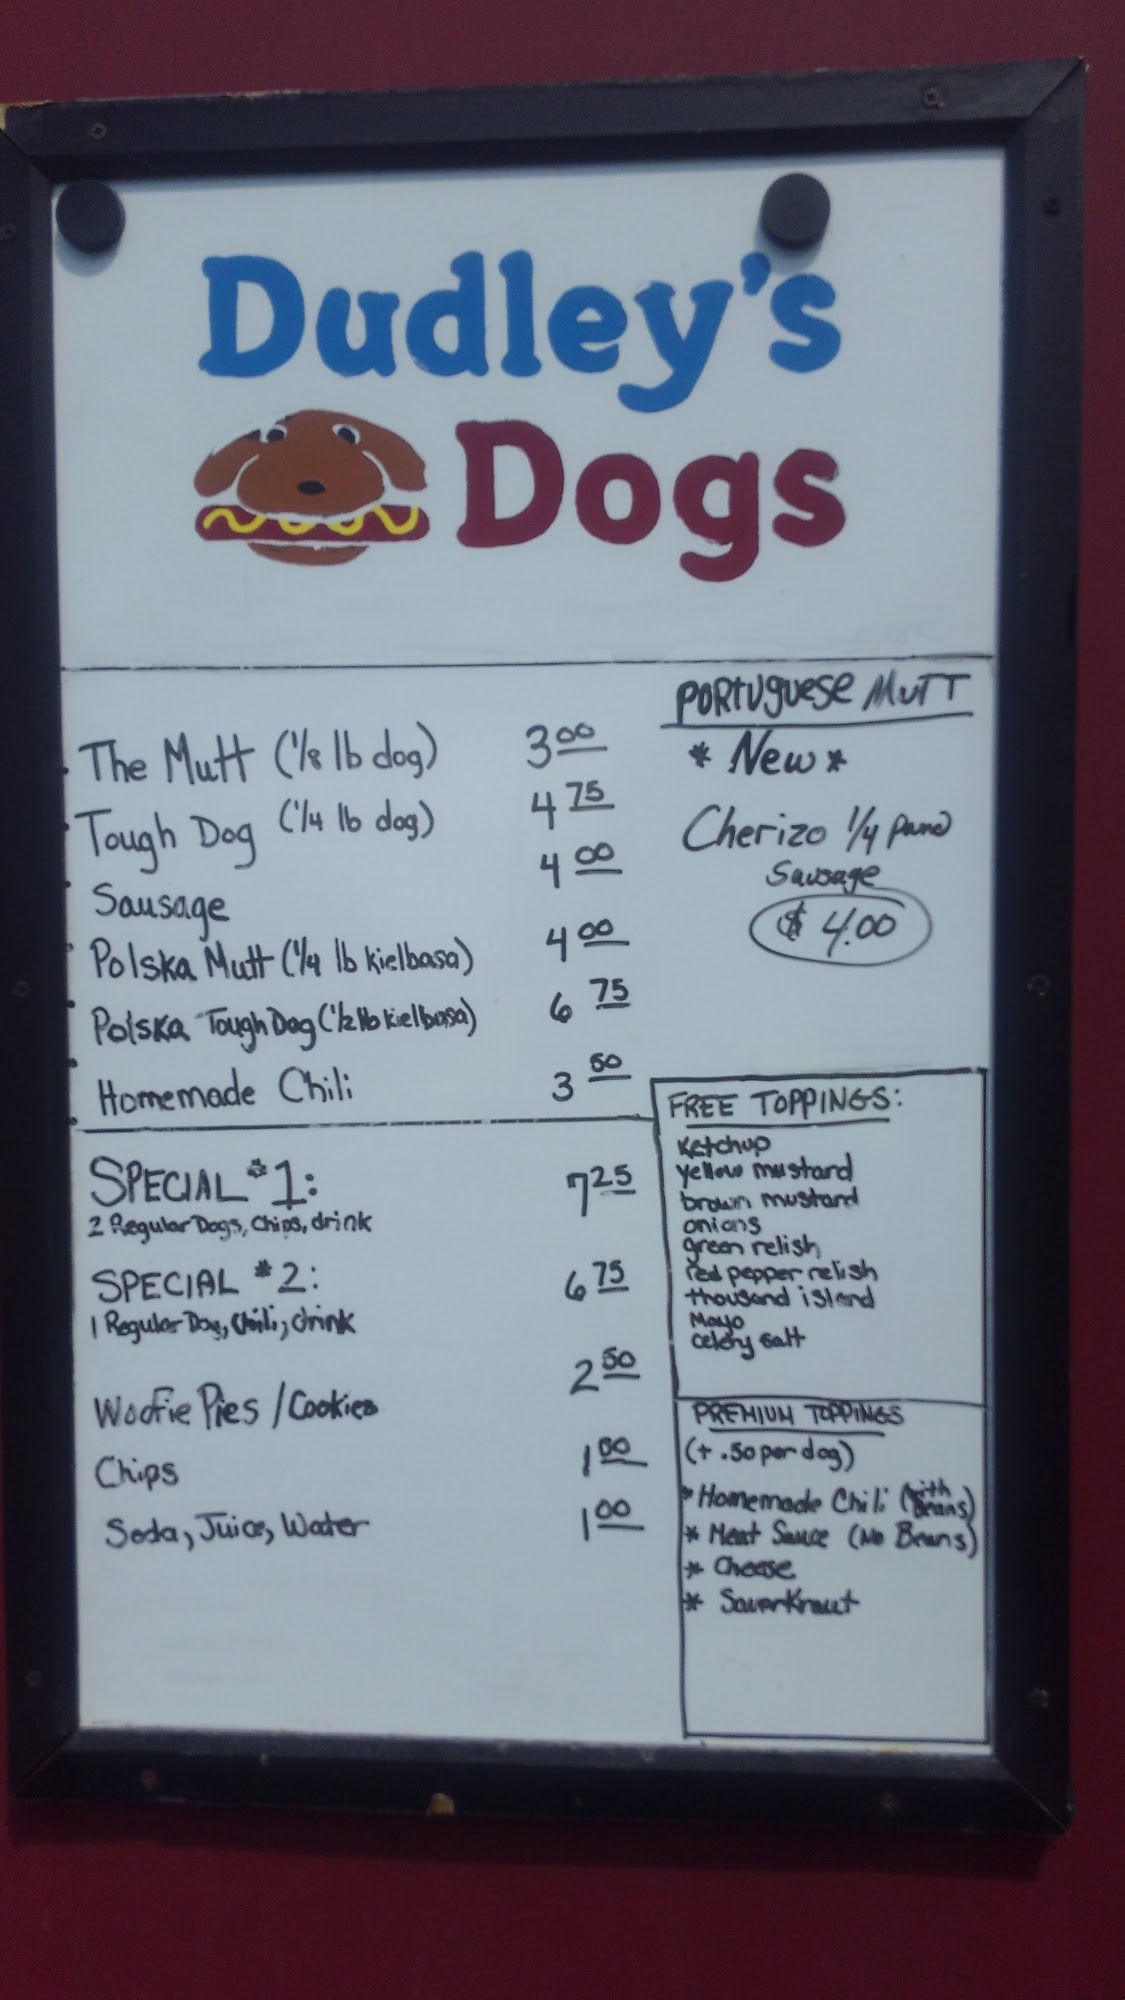 Dudley's
Dogs
The Mutt (1/8 lb dog) 3.00
Tough Dog (1/4 lb dog) 4.75
Sausage 4.00
Polska Mutt (1/4 lb kielbasa) 4.00
Polska Tough Dog (1/2 lb kielbasa) 6.75
Homemade Chili 3.50
PORTUGUESE MUTT
* New *
Cherizo 1/4 pand
Sausage
$ 4.00
SPECIAL #1: 7.25
2 Regular Dogs, Chips, drink
SPECIAL #2: 6.75
1 Regular Dog, Chili, drink
Woofie Pies / Cookies 2.50
Chips 1.00
Soda, Juice, Water 1.00
FREE TOPPINGS:
Ketchup
yellow mustard
brown mustard
onions
green relish
red pepper relish
thousand island
Mayo
celery salt
PREMIUM TOPPINGS
(+ .50 per dog)
* Homemade Chili (with Beans)
* Meat Sauce (No Beans)
* Cheese
* Sauerkraut